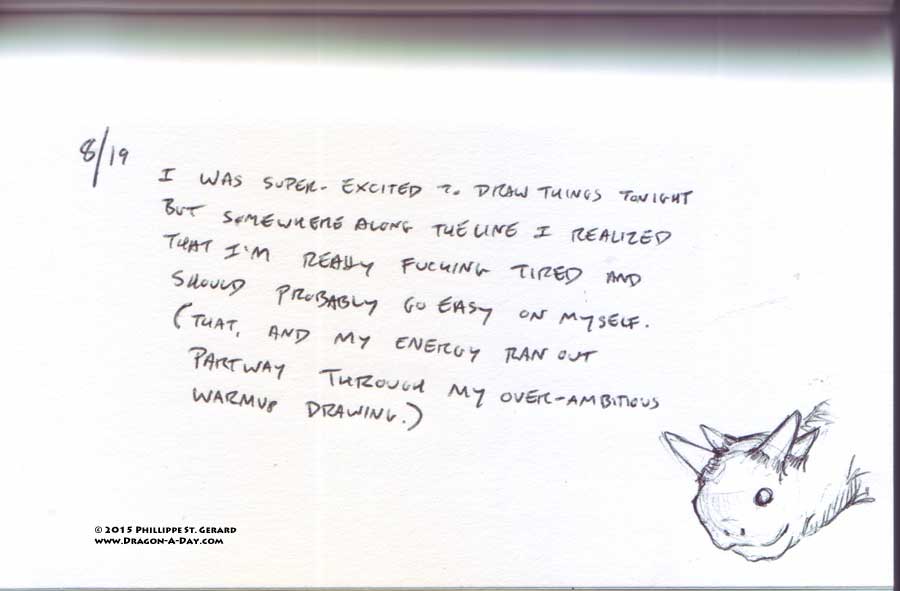 8/19
I WAS SUPER-EXCITED TO DRAW THINGS TONIGHT
BUT SOMEWHERE ALONG THE LINE I REALIZED
THAT I'M REALLY FUCKING TIRED AND
SHOULD PROBABLY GO EASY ON MYSELF.
(THAT, AND MY ENERGY RAN OUT
PARTWAY THROUGH MY OVER-AMBITIOUS
WARMUP DRAWING.)
© 2015 PHILLIPPE ST. GERARD
WWW.DRAGON-A-DAY.COM